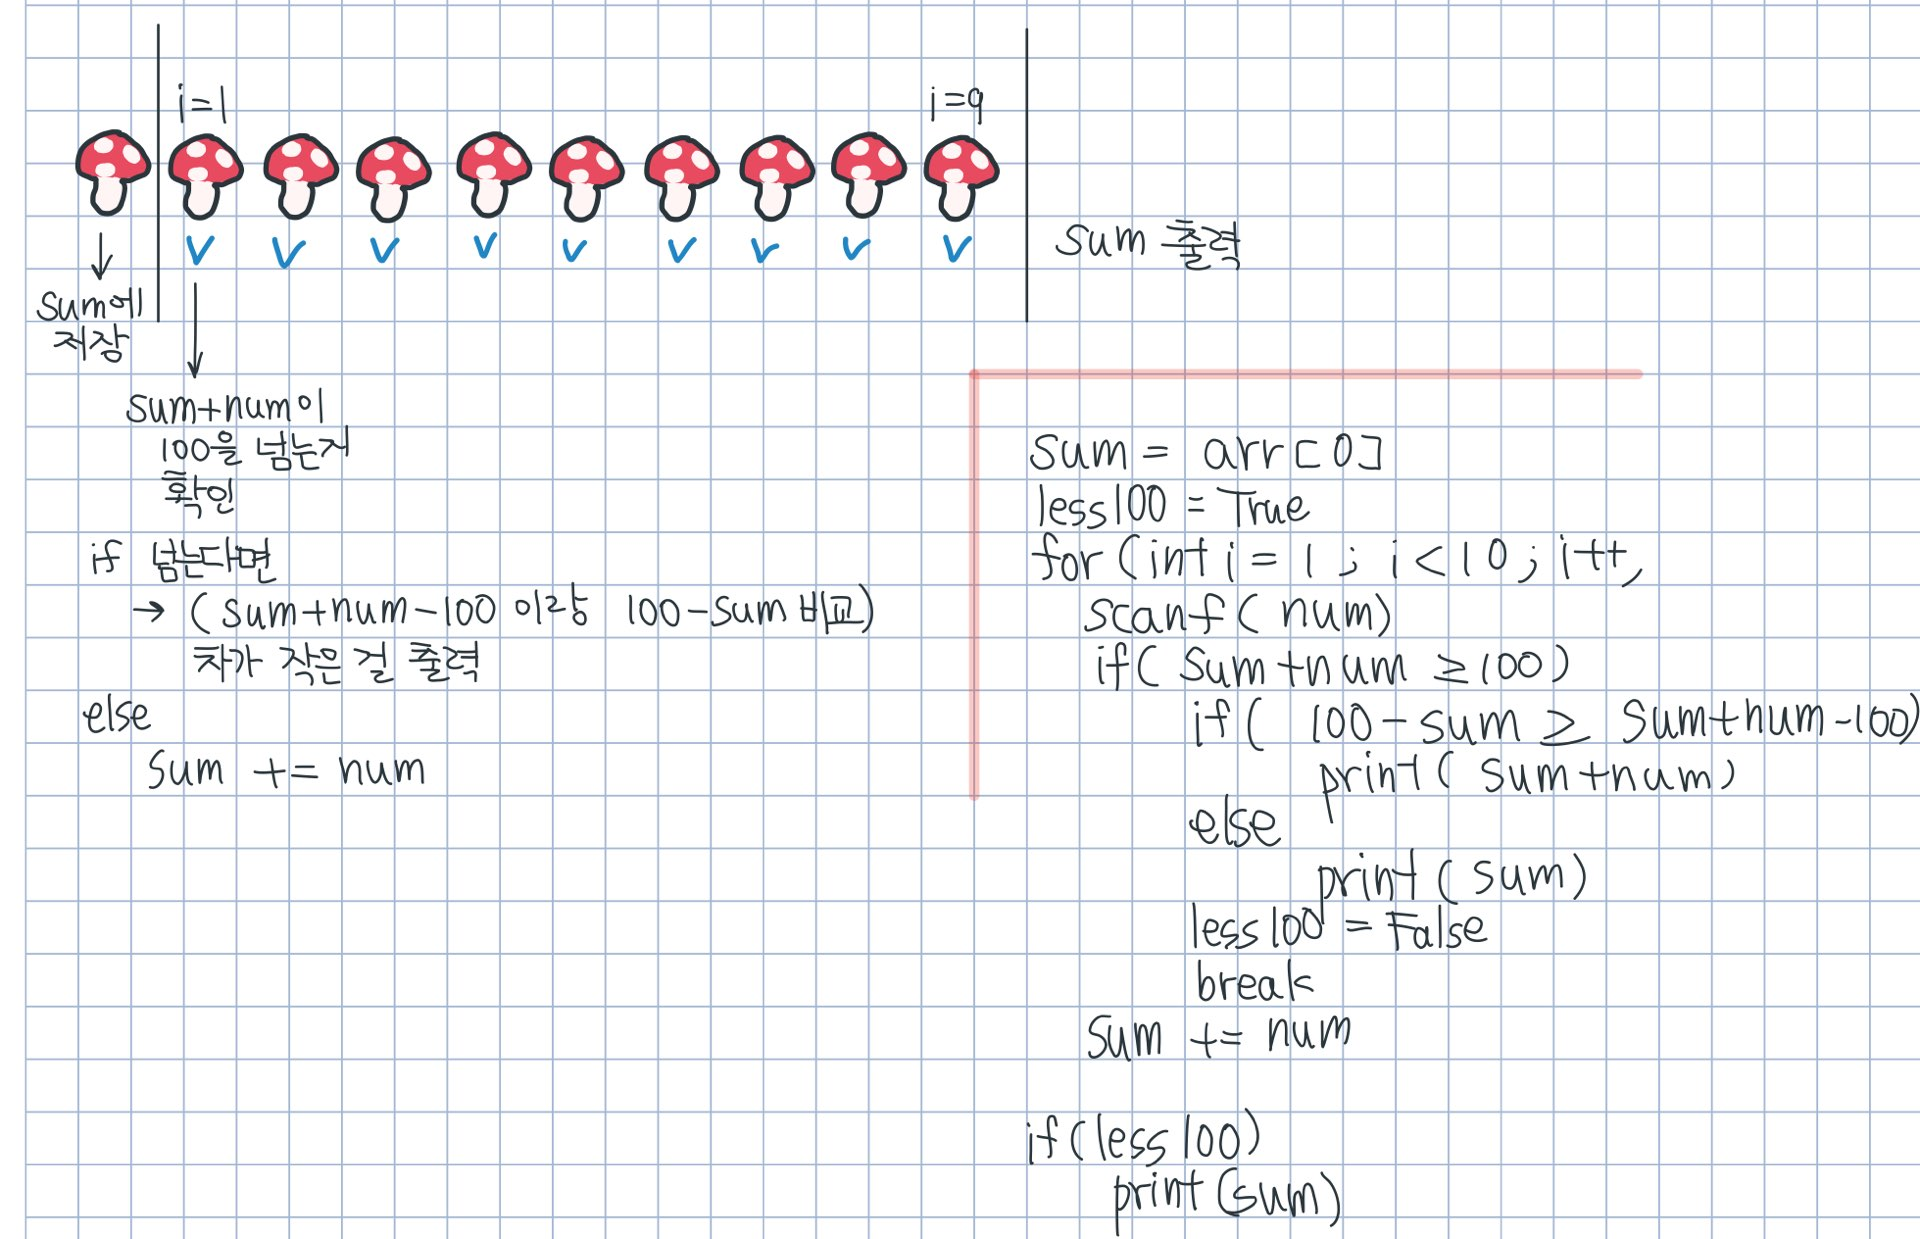 i=1
i=9
sum에
저장
sum 출력
sum+num이
100을 넘는지
확인
if 넘는다면
→ (sum+num-100 이랑 100-sum 비교)
차가 작은 걸 출력
else
sum += num
sum = arr[0]
less100 = True
for (int i = 1 ; i < 10 ; i++,
scanf( num)
if( sum+num ≥100)
if( 100-sum ≥ sum+num-100)
print( sum+num)
else
print (sum)
less100 = False
break
sum += num
if(less100)
print(sum)